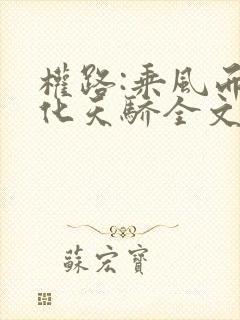 權路:乘風而
化天驕全文
蘇宏寶